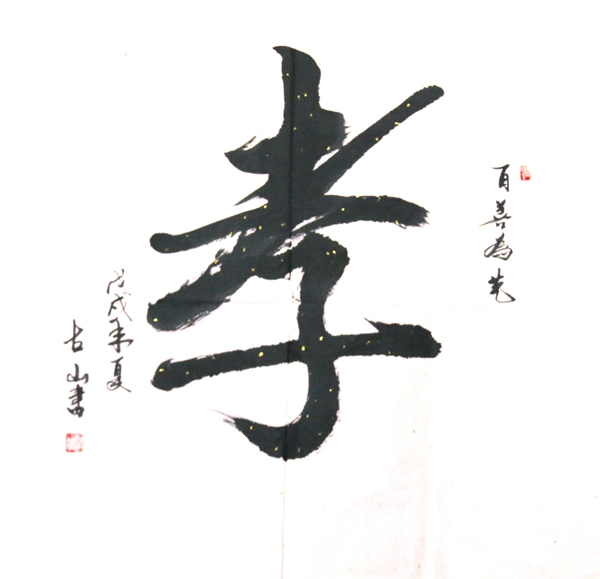 百善為先
孝
戊戌年夏
古山書